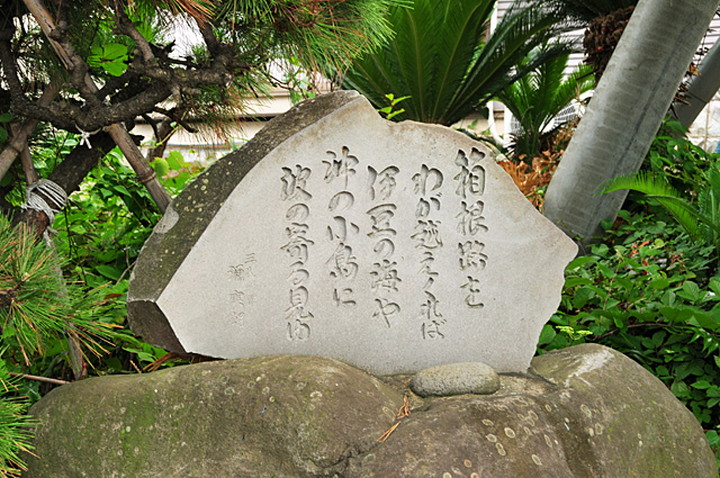 箱根路を
わが越えくれば
伊豆の海や
沖の小島に
波の寄る見ゆ